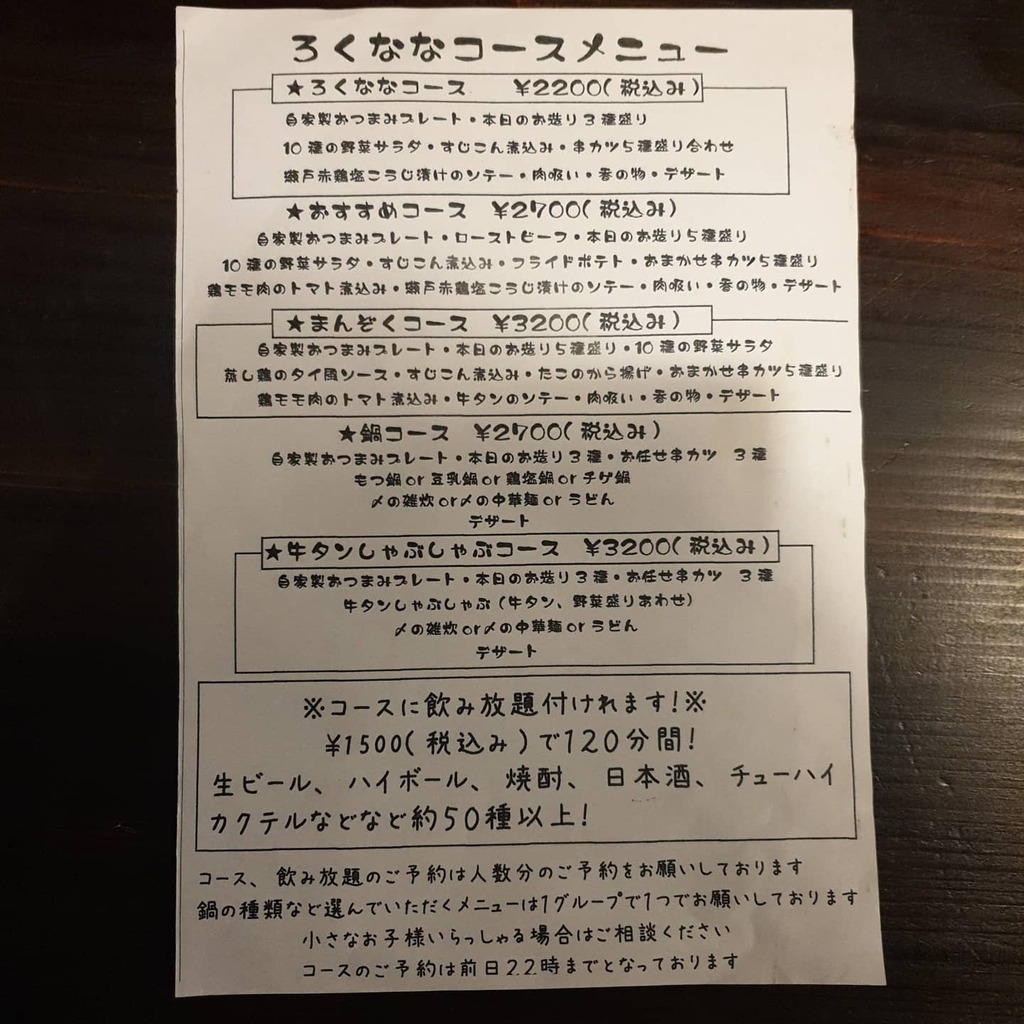 ろくななコースメニュー
★ろくななコース ¥2200(税込み)
自家製おつまみプレート・本日のお造り3種盛り
10種の野菜サラダ・すじこん煮込み・串カツ5種盛り合わせ
瀬戸赤鶏塩こうじ漬けのソテー・肉吸い・香の物・デザート
★おすすめコース ¥2700(税込み)
自家製おつまみプレート・ローストビーフ・本日のお造り5種盛り
10種の野菜サラダ・すじこん煮込み・フライドポテト・おまかせ串カツ5種盛り
鶏モモ肉のトマト煮込み・瀬戸赤鶏塩こうじ漬けのソテー・肉吸い・香の物・デザート
★まんぞくコース ¥3200(税込み)
自家製おつまみプレート・本日のお造り5種盛り・10種の野菜サラダ
蒸し鶏のタイ風ソース・すじこん煮込み・たこのから揚げ・おまかせ串カツ5種盛り
鶏モモ肉のトマト煮込み・牛タンのソテー・肉吸い・香の物・デザート
★鍋コース ¥2700(税込み)
自家製おつまみプレート・本日のお造り3種・お任せ串カツ 3種
もつ鍋or豆乳鍋or鶏塩鍋orチゲ鍋
〆の雑炊or〆の中華麺orうどん
デザート
★牛タンしゃぶしゃぶコース ¥3200(税込み)
自家製おつまみプレート・本日のお造り3種・お任せ串カツ 3種
牛タンしゃぶしゃぶ(牛タン、野菜盛りあわせ)
〆の雑炊or〆の中華麺orうどん
デザート
※コースに飲み放題付けれます!※
¥1500(税込み)で120分間!
生ビール、ハイボール、焼酎、日本酒、チューハイ
カクテルなどなど約50種以上!
コース、飲み放題のご予約は人数分のご予約をお願いしております
鍋の種類など選んでいただくメニューは1グループで1つでお願いしております
小さなお子様いらっしゃる場合はご相談ください
コースのご予約は前日22時までとなっております